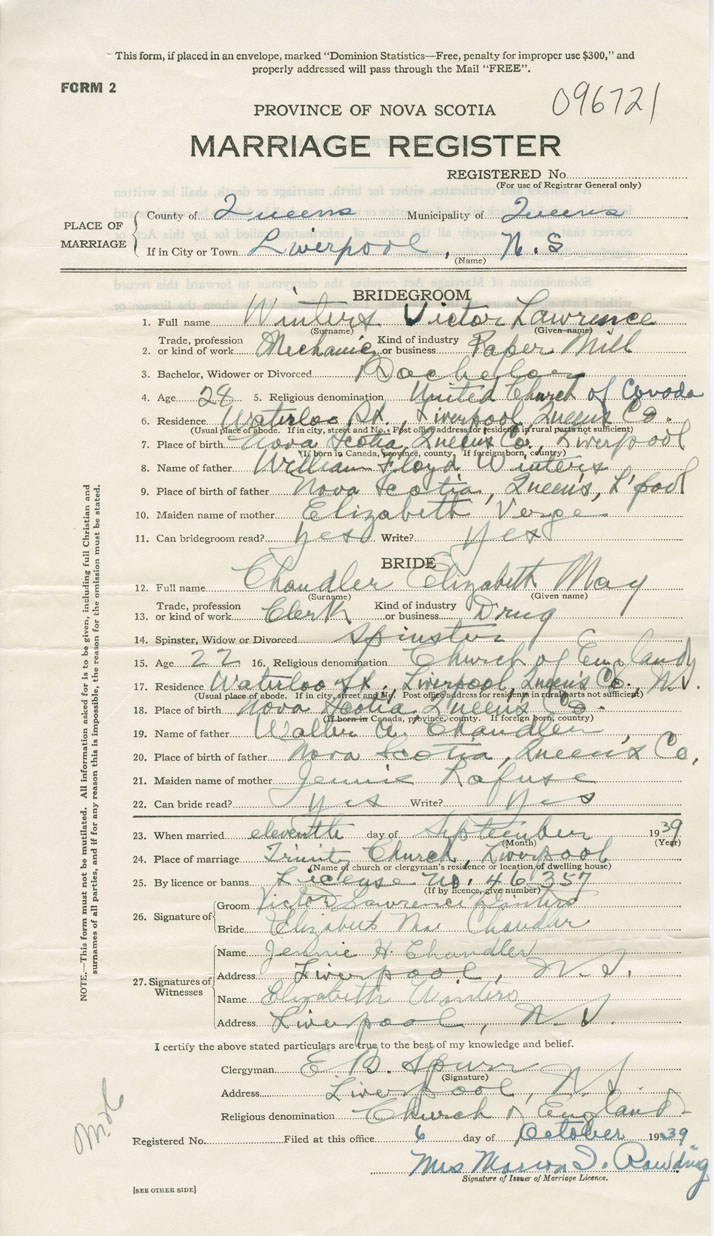 This form, if placed in an envelope, marked "Dominion Statistics—Free, penalty for improper use $300," and
properly addressed will pass through the Mail "FREE".
FORM 2
096721
PROVINCE OF NOVA SCOTIA
MARRIAGE REGISTER
REGISTERED No.
(For use of Registrar General only)
PLACE OF MARRIAGE
County of Queens Municipality of Queens
If in City or Town Liverpool, N.S
(Name)
BRIDEGROOM
1. Full name Winters Victor Lawrence
(Surname) (Given name)
2. Trade, profession or kind of work Mechanic Kind of industry or business Paper Mill
3. Bachelor, Widower or Divorced Bachelor
4. Age 28 5. Religious denomination United Church of Canada
6. Residence Waterloo St., Liverpool, Queen's Co.
(Usual place of abode. If in city, street and No. Post office address for residents in rural parts not sufficient)
7. Place of birth Nova Scotia, Queen's Co. Liverpool
(If born in Canada, province, county. If foreign born, country)
8. Name of father William Floyd Winters
9. Place of birth of father Nova Scotia, Queen's, L'pool
10. Maiden name of mother Elizabeth Verge
11. Can bridegroom read? yes Write? yes
BRIDE
12. Full name Chandler Elizabeth May
(Surname) (Given name)
13. Trade, profession or kind of work Clerk Kind of industry or business Drug
14. Spinster, Widow or Divorced Spinster
15. Age 22 16. Religious denomination Church of England
17. Residence Waterloo St., Liverpool, Queen's Co., N.S.
(Usual place of abode. If in city, street and No. Post office address for residents in rural parts not sufficient)
18. Place of birth Nova Scotia Queen's Co.
(If born in Canada, province, county. If foreign born, country)
19. Name of father Walter A. Chandler
20. Place of birth of father Nova Scotia, Queen's Co,
21. Maiden name of mother Jennie Rafuse
22. Can bride read? yes Write? yes
23. When married eleventh day of September 1939
(Month) (Year)
24. Place of marriage Trinity Church, Liverpool
(Name of church or clergyman's residence or location of dwelling house)
25. By licence or banns License No. 46357
(If by licence, give number)
26. Signature of
Groom Victor Lawrence Winters
Bride Elizabeth Mae Chandler
27. Signatures of Witnesses
Name Jennie H. Chandler
Address Liverpool, N.S.
Name Elizabeth Winters
Address Liverpool, N.S.
I certify the above stated particulars are true to the best of my knowledge and belief.
Clergyman E B. Spurr
(Signature)
Address Liverpool, N.S.
Religious denomination Church of England
Registered No. Filed at this office 6 day of October 1939
Mrs Marion I. Rawding
Signature of Issuer of Marriage Licence.
[SEE OTHER SIDE]
NOTE.—This form must not be mutilated. All information asked for is to be given, including full Christian and
surnames of all parties, and if for any reason this is impossible, the reason for the omission must be stated.